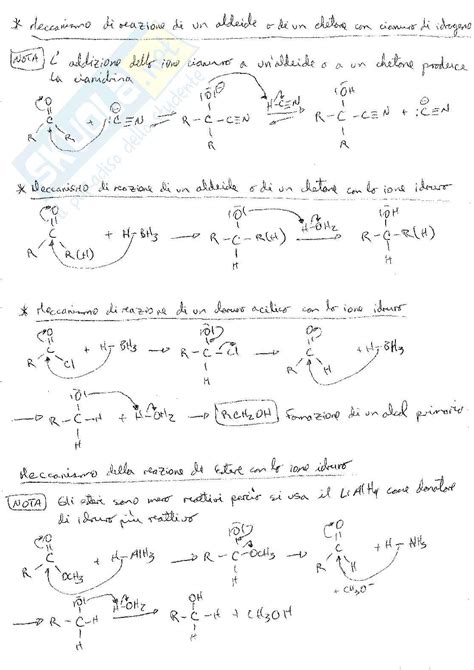 * Meccanismo di reazione di un aldeide o di un chetone con cianuro di idrogeno
NOTA L'addizione dello ione cianuro a un'aldeide o a un chetone produce
la cianidrina
R C R + C≡N R-C-C≡N H-C≡N R-C-C≡N + C≡N
* Meccanismo di reazione di un aldeide o di un chetone con lo ione idruro
R C R(H) + H-BH3 R-C-R(H) H-OH2 R-C-R(H)
* Meccanismo di reazione di un cloruro acilico con lo ione idruro
R C Cl + H-BH3 R-C-Cl R C H + H-BH3
R-C-H + H-OH2 RCH2OH Formazione di un alcol primario
Meccanismo della reazione di estere con lo ione idruro
NOTA Gli esteri sono meno reattivi perciò si usa il LiAlH4 come donatore
di idruro più reattivo
R C OCH3 + H-AlH3 R-C-OCH3 R C H + H-
+ CH3O-
R-C-H H-OH2 R-C-H + CH3OH